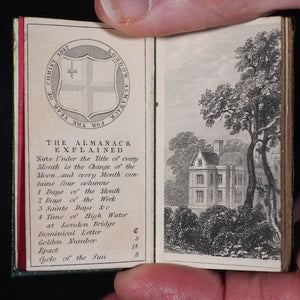 LONDON ALMANACK FOR THE YEAR OF CHRIST
THE ALMANACK
EXPLAINED
Note Under the Title of every
Month is the Change of the
Moon, and every Month con
tains four columns
1 Days of the Month
2 Days of the Week
3 Saints Days &c
4 Time of High Water
at London Bridge
Dominical Letter
Golden Number 5
Epact 14
Cycle of the Sun 8